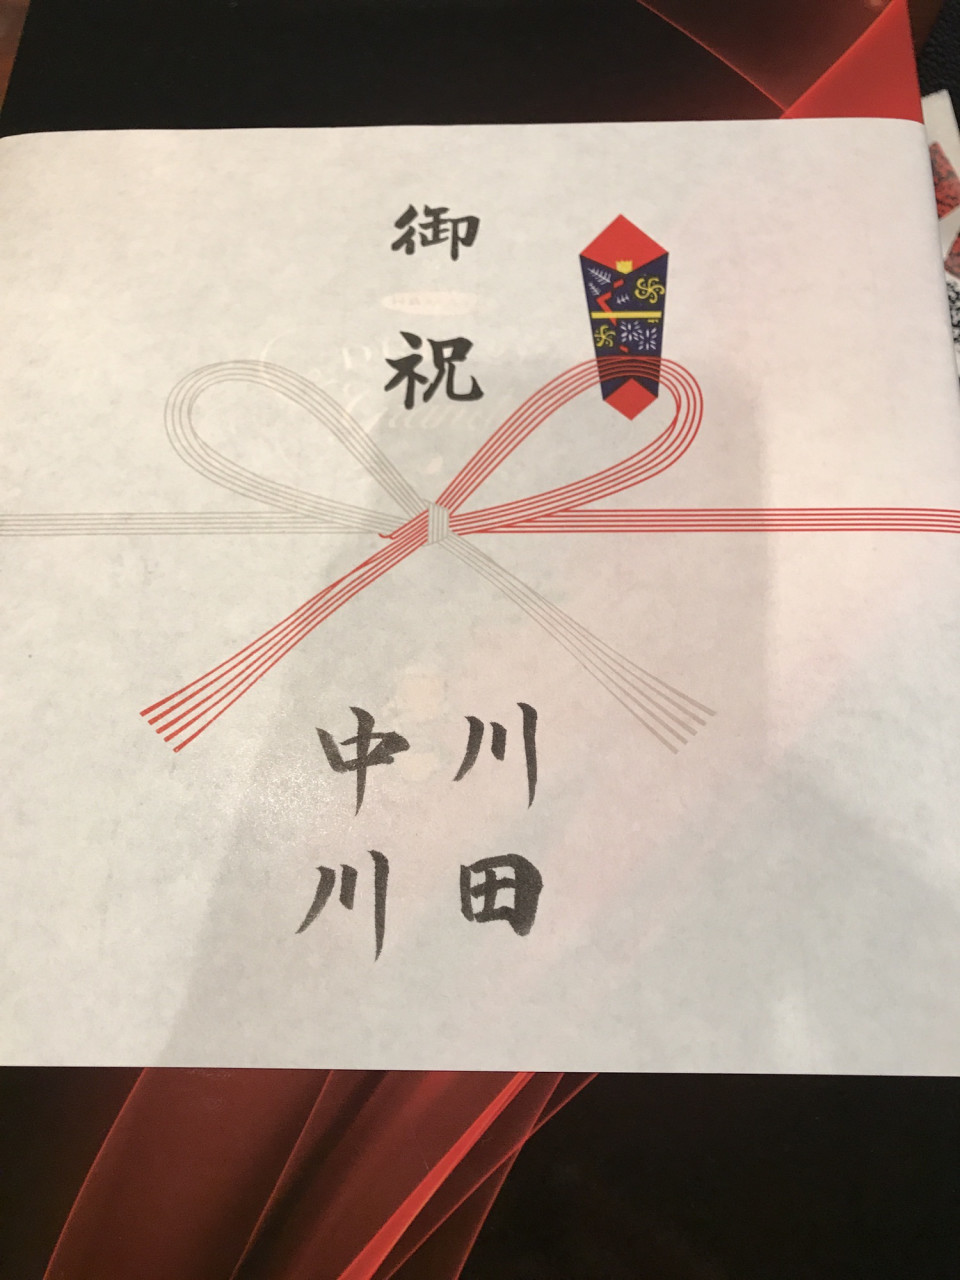 御祝
川田
中川